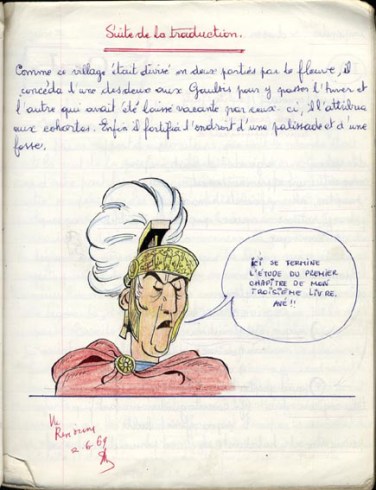 Suite de la traduction.
Comme ce village était divisé en deux parties par le fleuve, il
concéda l'une des deux aux Gaulois pour y passer l'hiver et
l'autre qui avait été laissée vacante par ceux-ci, il l'attribua
aux cohortes. Enfin il fortifia l'endroit d'une palissade et d'une
fosse.
ICI SE TERMINE
L'ÉTUDE DU PREMIER
CHAPITRE DE MON
TROISIÈME LIVRE.
AVÉ !!
Vu
2.6.69